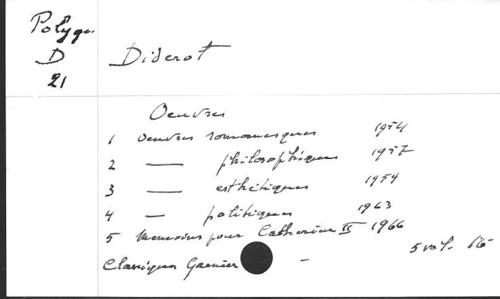 Polygr.
D
21
Diderot
Oeuvres
1 Oeuvres romanesques 1954
2 — philosophiques 1957
3 — esthétiques 1954
4 — politiques 1963
5 Memoires pour Catherine II 1966
Classiques Garnier - 5 vol.